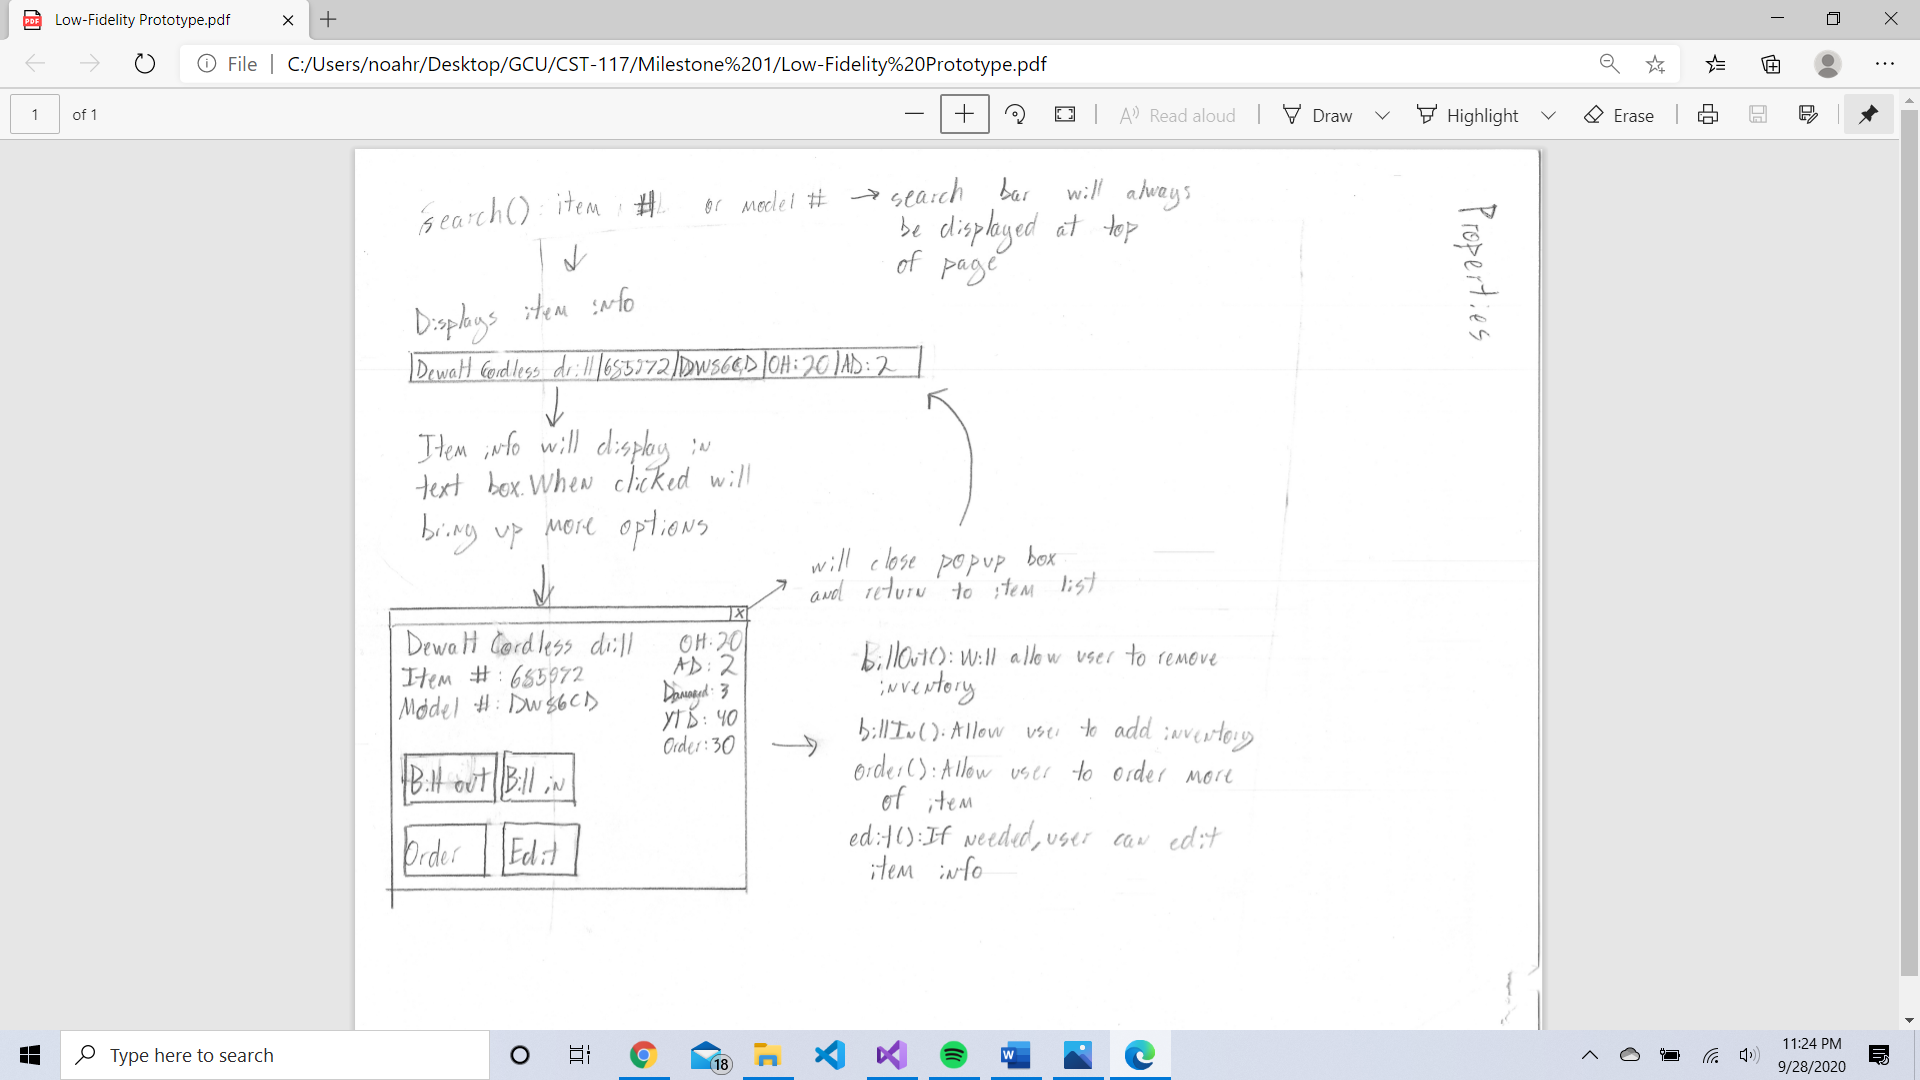 Low-Fidelity Prototype.pdf
File
C:/Users/noahr/Desktop/GCU/CST-117/Milestone%201/Low-Fidelity%20Prototype.pdf
1 of 1
Read aloud
Draw
Highlight
Erase
search(): item # or model # → search bar will always
be displayed at top
of page
Properties
Displays item info
Dewalt Cordless drill | 685972 | DW86CD | OH: 20 | AD: 2
Item info will display in
text box. When clicked will
bring up more options
will close popup box
and return to item list
X
Dewalt Cordless drill
Item #: 685972
Model #: DW86CD
OH: 20
AD: 2
Damaged: 3
YTD: 40
Order: 30
Bill out
Bill in
Order
Edit
BillOut(): Will allow user to remove
inventory
billIn(): Allow user to add inventory
order(): Allow user to order more
of item
edit(): If needed, user can edit
item info
Type here to search
18
11:24 PM
9/28/2020